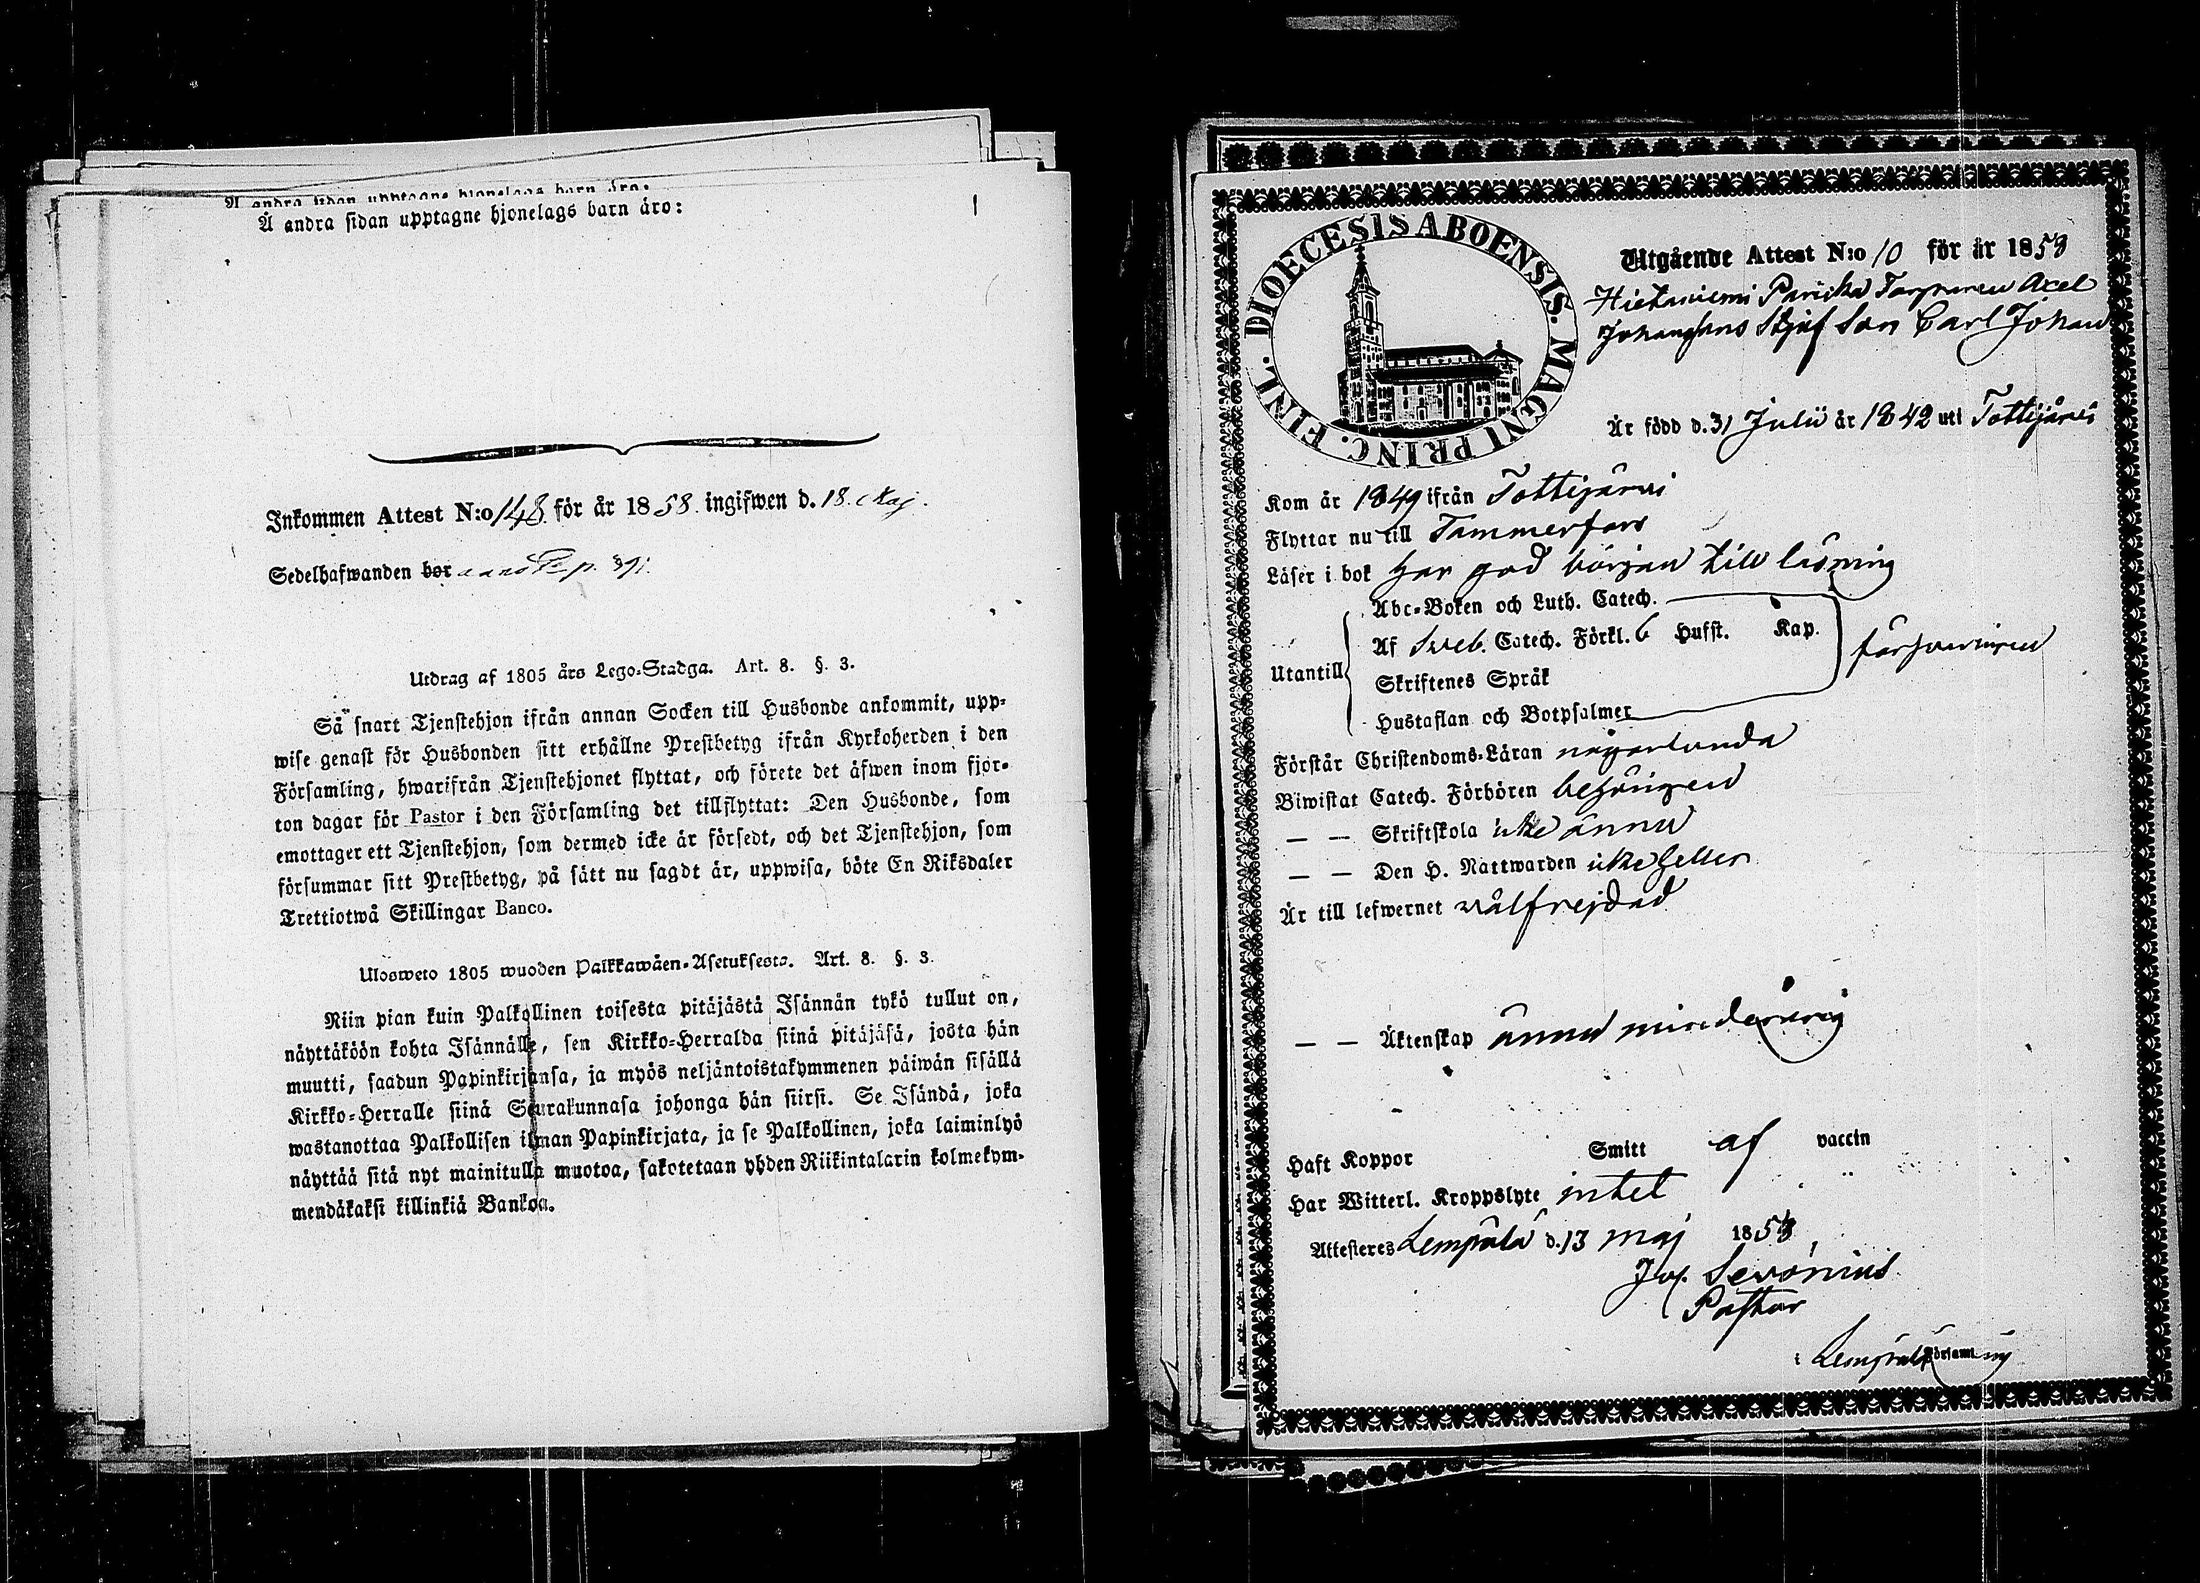 Å andra sidan upptagne hjonelags barn äro:
Å andra sidan upptagne hjonelags barn äro:
Inkommen Attest N:o 148 för år 1858 ingifwen d. 18. Maj.
Sedelhafwanden bor p. 391.
Utdrag af 1805 års Lego-Stadga. Art. 8. §. 3.
Så snart Tjenstehjon ifrån annan Socken till Husbonde ankommit, upp-
wise genast för Husbonden sitt erhållne Prestbetyg ifrån Kyrkoherden i den
Församling, hwarifrån Tjenstehjonet flyttat, och förete det äfwen inom fjor-
ton dagar för Pastor i den Församling det tillflyttat: Den Husbonde, som
emottager ett Tjenstehjon, som dermed icke är försedt, och det Tjenstehjon, som
försummar sitt Prestbetyg, på sätt nu sagdt är, uppwisa, böte En Riksdaler
Trettiotwå Skillingar Banco.
Ulosweto 1805 wuoden Palkkawäen-Asetuksesta. Art. 8. §. 3.
Niin pian kuin Palkollinen toisesta pitäjästä Isännän tykö tullut on,
näyttäköön kohta Isännälle, sen Kirkko-Herralda siinä pitäjäsä, josta hän
muutti, saadun Papinkirjansa, ja myös neljäntoistakymmenen päiwän sisällä
Kirkko-Herralle siinä Seurakunnasa johonga hän siirsi. Se Isändä, joka
wastanottaa Palkollisen ilman Papinkirjata, ja se Palkollinen, joka laiminlyö
näyttää sitä nyt mainitulla muotoa, sakotetaan yhden Riikintalarin kolmekym-
mendäkaksi killinkiä Bankoa.
DIOECESIS ABOENSIS. MAGNI PRINC. FINL.
Utgående Attest N:o 10 för år 1858
Hietaniemi Torparen Axel
Johanssons Son Carl Johan
Är född d. 31 Julii år 1842 uti Tottijärvi
Kom år 1849 ifrån Tottijärvi
Flyttar nu till Tammerfors
Läser i bok har god början till läsning
Utantill
Abc-Boken och Luth. Catech.
Af Sveb. Catech. Förkl. 6 Hufst. Kap.
försvarligen
Skriftenes Språk
Hustaflan och Botpsalmer
Förstår Christendoms-Läran någorlunda
Biwistat Catech. Förhören behörigen
— — Skriftskola icke ännu
— — Den H. Nattwarden icke heller
Är till lefwernet välfrejdad
— — Äktenskap ännu minderårig
Haft Koppor Smitt af vaccin
Har Witterl. Kroppslyte intet
Attesteres Lempälä d. 13 Maj 1858
Jos. Sevonius
Pastor
i Lempälä Församling